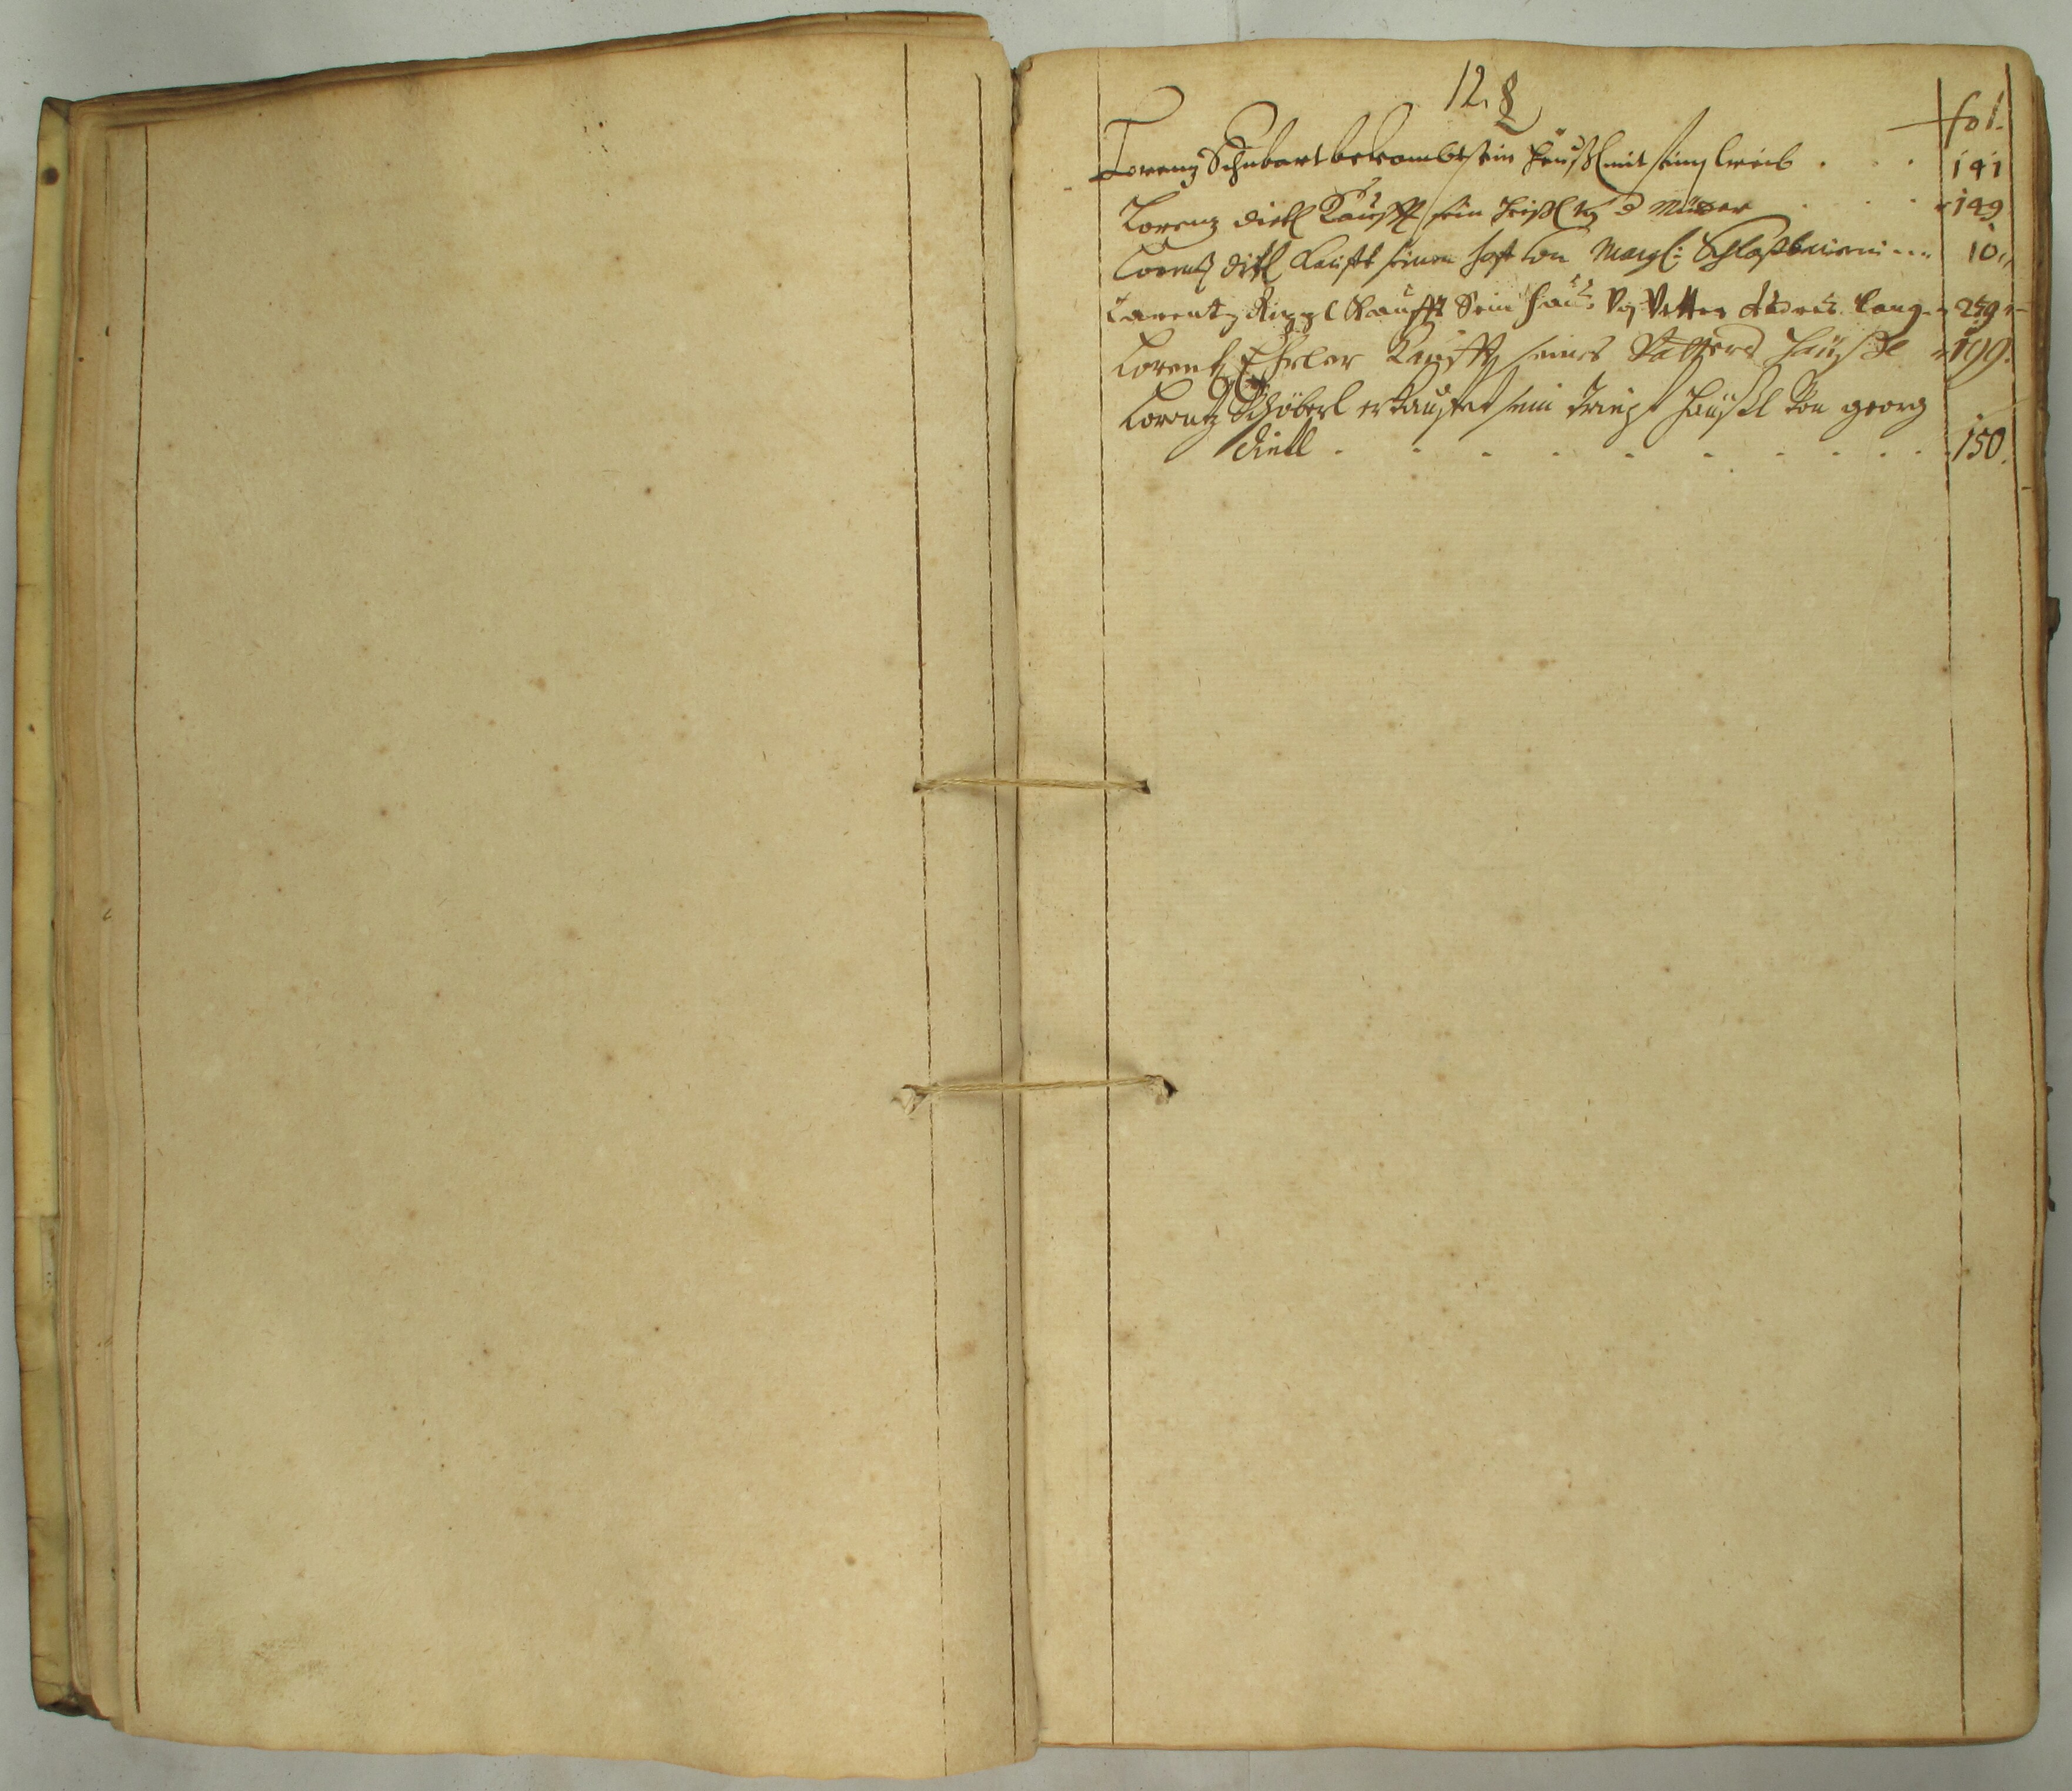 12. L
fol.
Lorenz Schubart bekombt sein Heußl mit seinem Weib . . . 141
Lorenz Dietl Kaufft sein Heißl von d Mutter . . . 149
Lorentz Dietl Kaufft seinen Hof von Margl: 10
Larentz Rippl Kaufft Sein Hauß Von Vetter Andreß Lang 259
Lorentz Kaufft seines Vatters Häußl 199.
Lorentz Schöberl erkaufet sein Häußl von Georg
Dietl . . . . . . . . . 150.